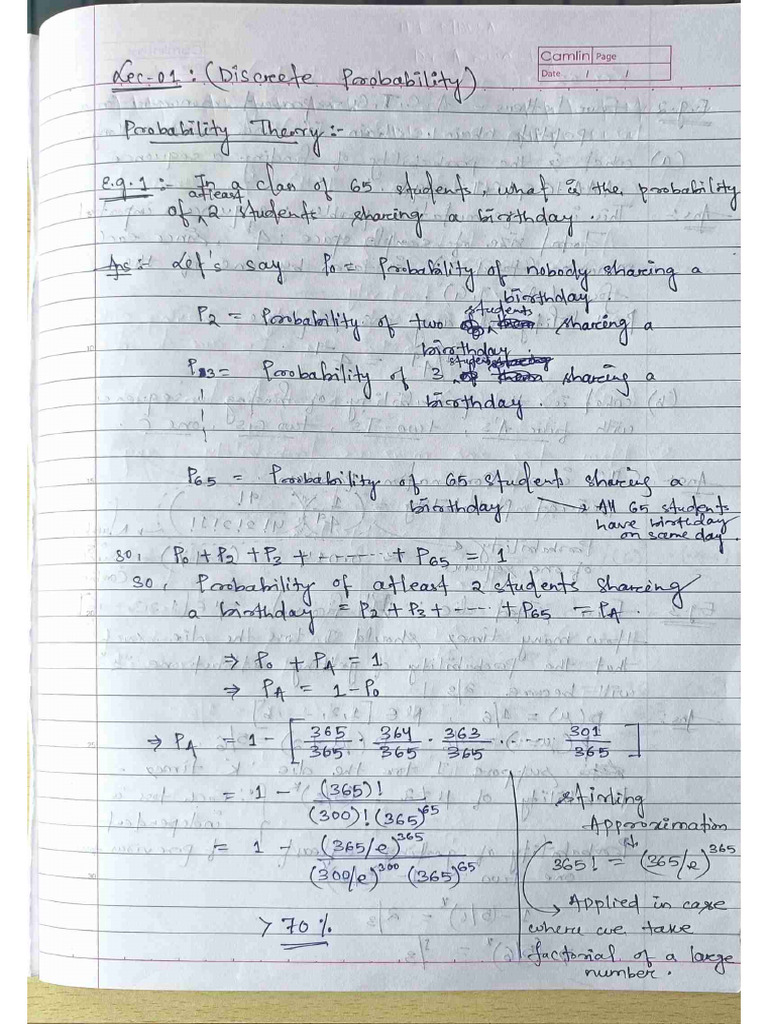 Camlin Page
Date / /
Lec-01 : (Discrete Probability)
Probability Theory :-
e.g.1 :- In a class of 65 students, what is the probability
of atleast 2 students sharing a birthday.
Ans :- Let's say P0 = Probability of nobody sharing a
birthday.
P2 = Probability of two students sharing a
birthday
P3 = Probability of 3 students sharing a
birthday.
P65 = Probability of 65 students sharing a
birthday → All 65 students
have birthday
on same day.
so, (P0 + P2) + P3 + ------- + P65 = 1
so, Probability of atleast 2 students sharing
a birthday = P2 + P3 + --- + P65 = PA.
⇒ P0 + PA = 1
⇒ PA = 1 - P0
⇒ PA = 1 - [365/365 · 364/365 · 363/365 ---- 301/365]
= 1 - (365)! / (300)! (365)^65
= 1 - (365/e)^365 / (300/e)^300 (365)^65
> 70%
Stirling
Approximation
365! = (365/e)^365
→ Applied in case
where we take
factorial of a large
number.